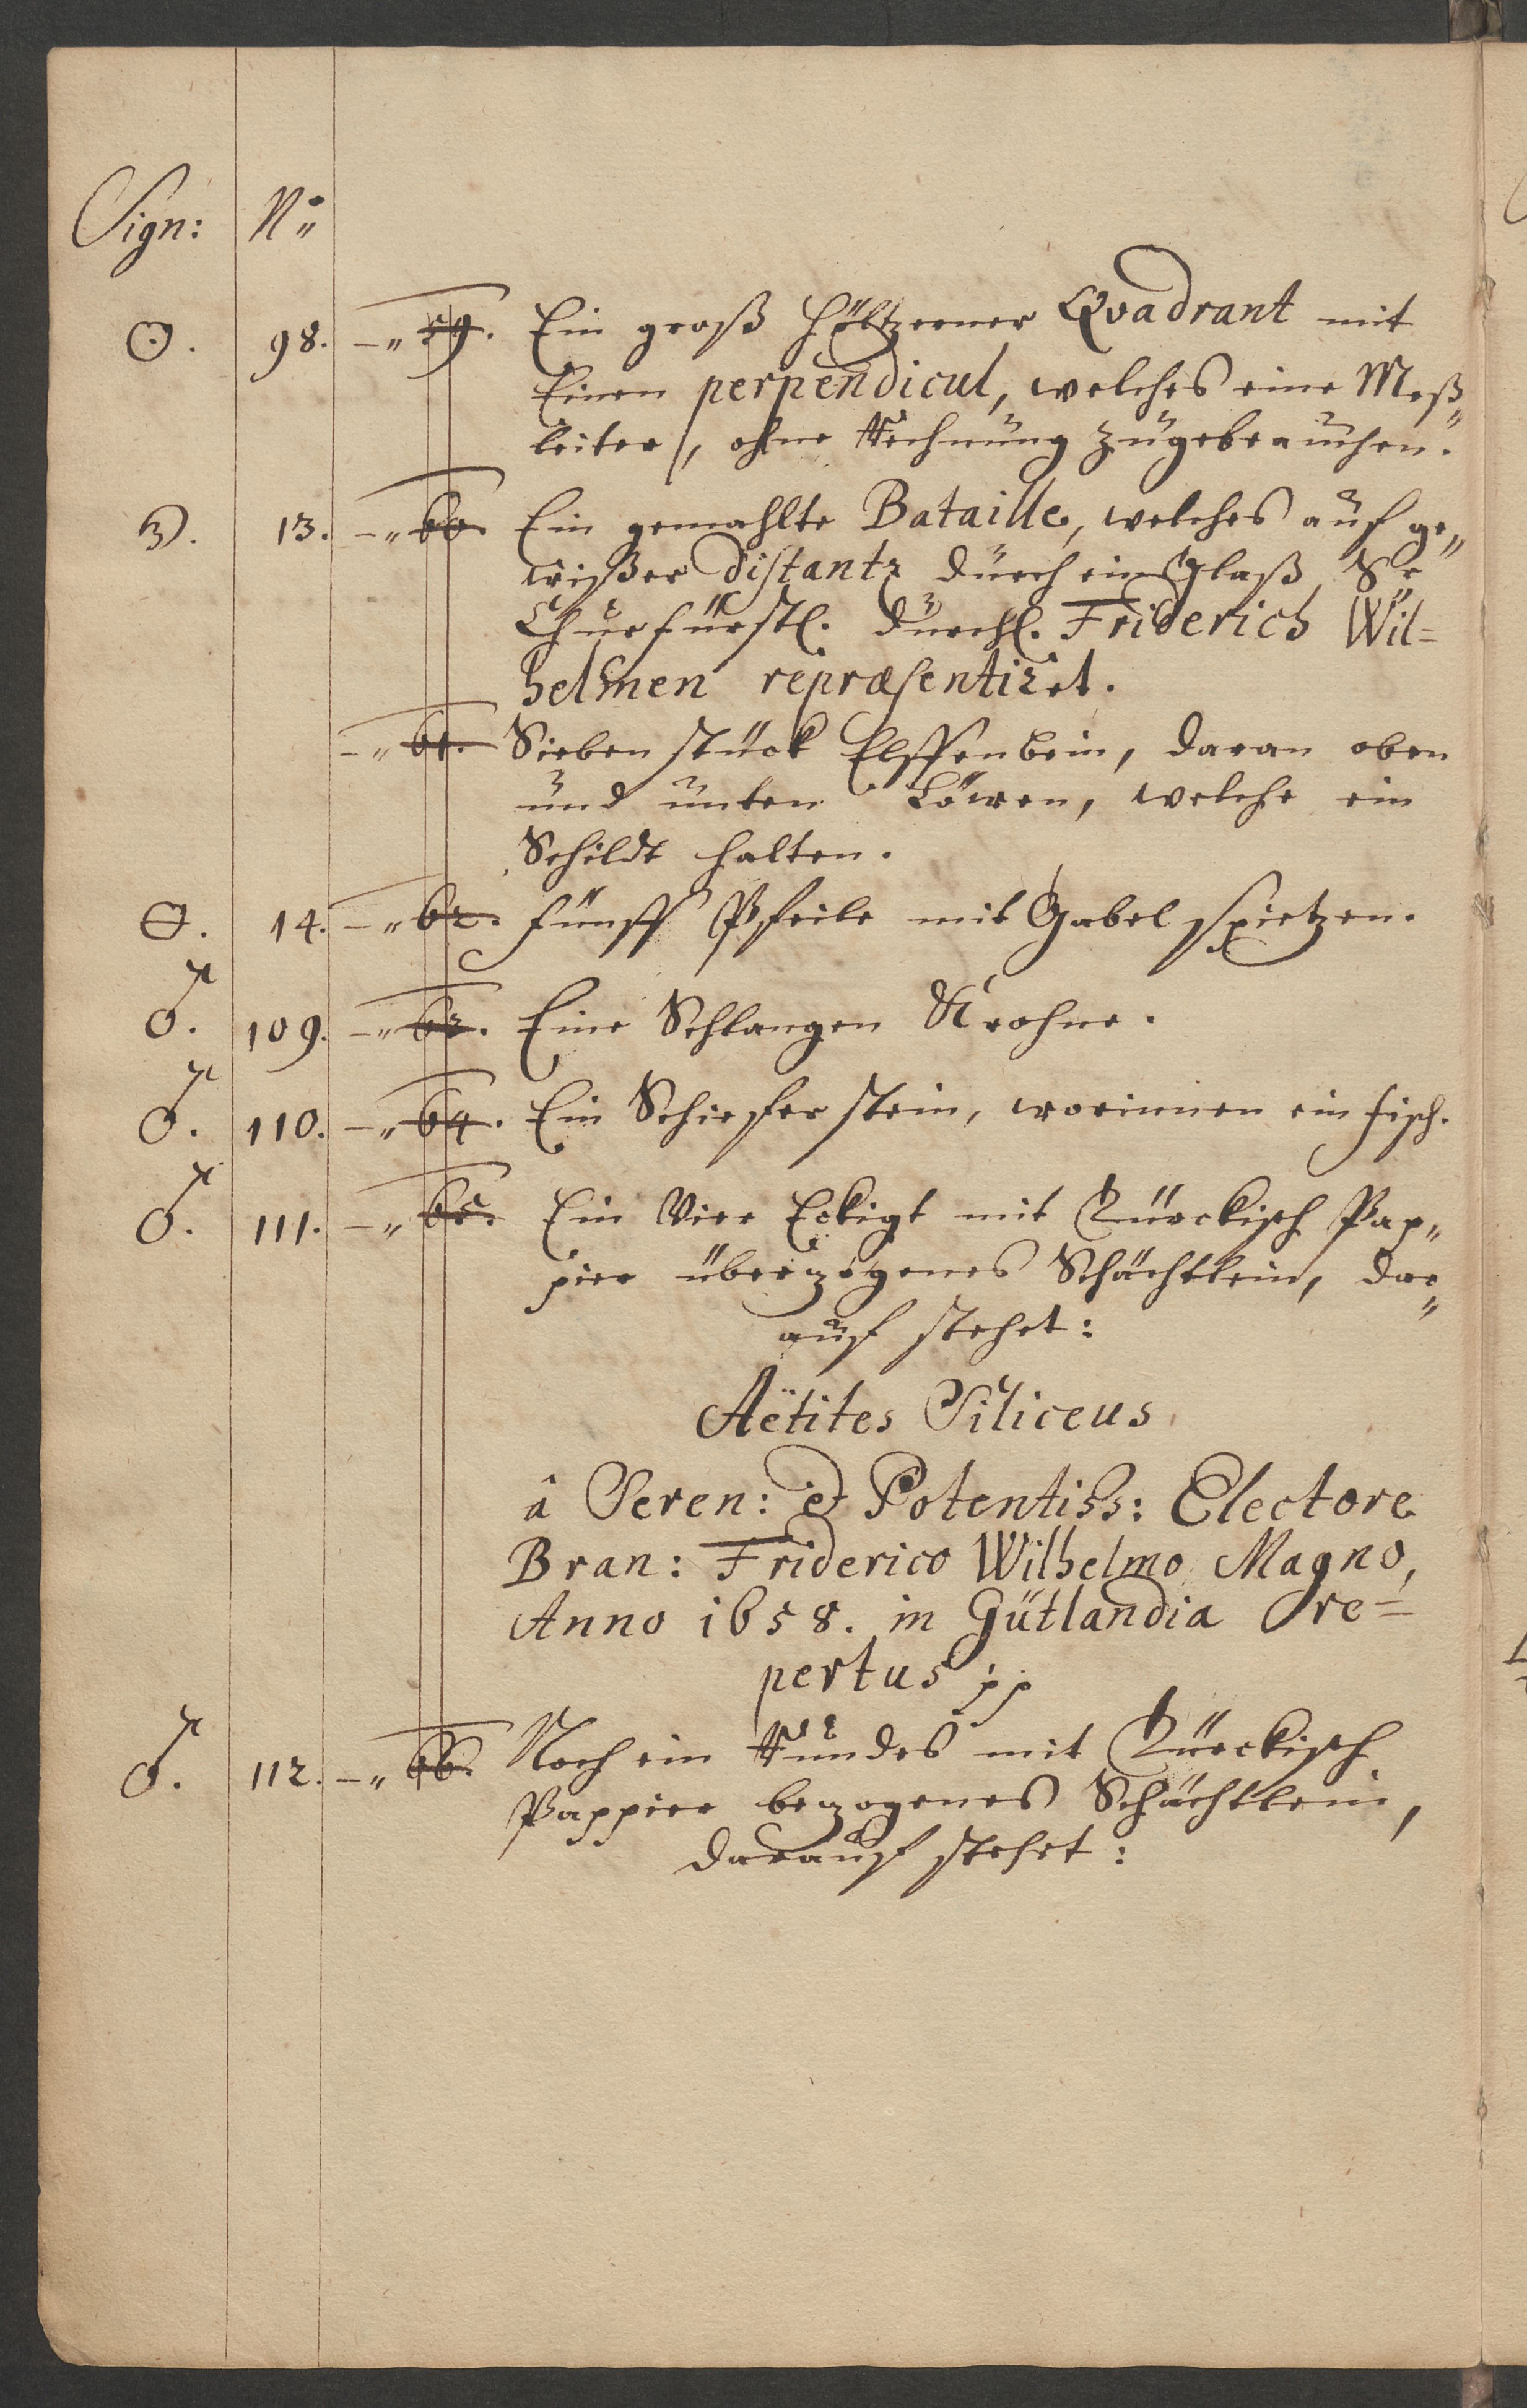 Sign: No
☉. 98. -„ 59. Ein groß höltzerner Qvadrant mit
Einen perpendicul, welches eine Meß„
leiter, ohne Rechnung zugebrauchen.
13. -„ 60. Ein gemahlte Bataille, welches auf ge„
wißer distantz durch ein Glaß Se
Churfürstl. Durchl. Friderich Wil=
helmen repræsentiret.
-„ 61. Sieben stück Elffenbein, daran oben
und unten Löwen, welche ein
Schildt halten.
14. -„ 62. Fünff Pfeile mit Gabel spietzen.
♂. 109. -„ 63. Eine Schlangen Krohne.
♂. 110. -„ 64. Ein Schiefer stein, worinnen ein Fisch.
♂. 111. -„ 65. Ein Vier Eckigt mit Türckisch Pap„
pier überzogenes Schächtlein, dar„
auf stehet:
Aëtites Siliceus
â Seren: et Potentiss: Electore
Bran: Friderico Wilhelmo Magno,
Anno 1658. in Gütlandia re=
pertus pp
♂. 112. -„ 66. Noch ein Rundes mit Türckisch
Pappier bezogenes Schächtlein,
darauf stehet: